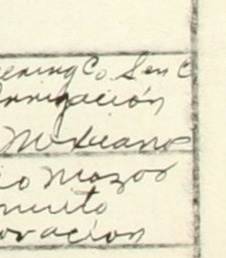 eening Co Sen C
Irrigación
Mexicano
io Mazos
miento
ovación